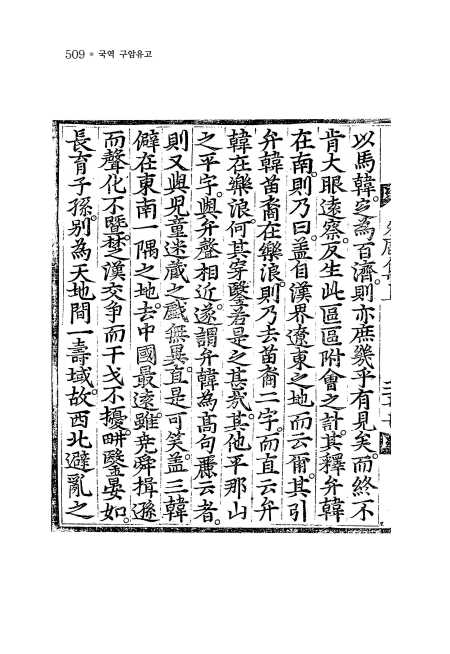 509 • 국역 구암유고
以馬韓。定爲百濟。則亦庶幾乎有見矣。而終不
肯大眼遠察。反生此區區附會之計。其釋弁韓
在南。則乃曰。盖自漢界遼東之地而云爾。其引
弁韓苗裔在樂浪。則乃去苗裔二字。而直云弁
韓在樂浪。何其穿鑿若是之甚哉。其他平那山
之平字。與弁聲相近。遂謂弁韓爲高句麗云者。
則又與兒童迷藏之戱無異。直是可笑。盖三韓
僻在東南一隅之地。去中國最遠。雖堯舜揖遜
而聲化不曁。楚漢交爭而干戈不擾。畊鑿晏如。
長育子孫。别爲天地間一壽域。故西北避亂之